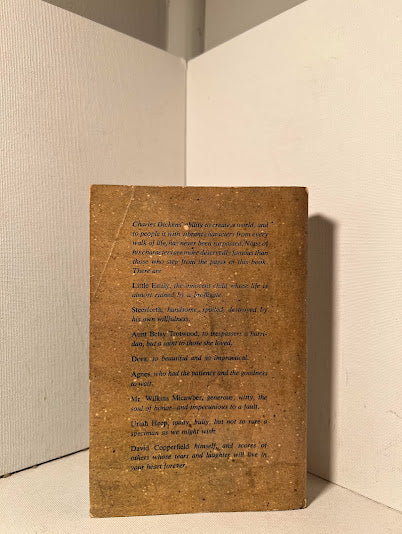 Charles Dickens' ability to create a world, and
to people it with vibrant characters from every
walk of life, has never been surpassed. None of
his characters are more deservedly famous than
those who step from the pages of this book.
There are
Little Emily, the innocent child whose life is
almost ruined by a profligate.
Steerforth, handsome, spoiled, destroyed by
his own willfulness.
Aunt Betsy Trotwood, to trespassers a harri-
dan, but a saint to those she loved.
Dora, so beautiful and so impractical.
Agnes, who had the patience and the goodness
to wait.
Mr. Wilkins Micawber, generous, witty, the
soul of honor, and impecunious to a fault.
Uriah Heep, toady, bully, but not so rare a
specimen as we might wish.
David Copperfield himself, and scores of
others whose tears and laughter will live in
your heart forever.